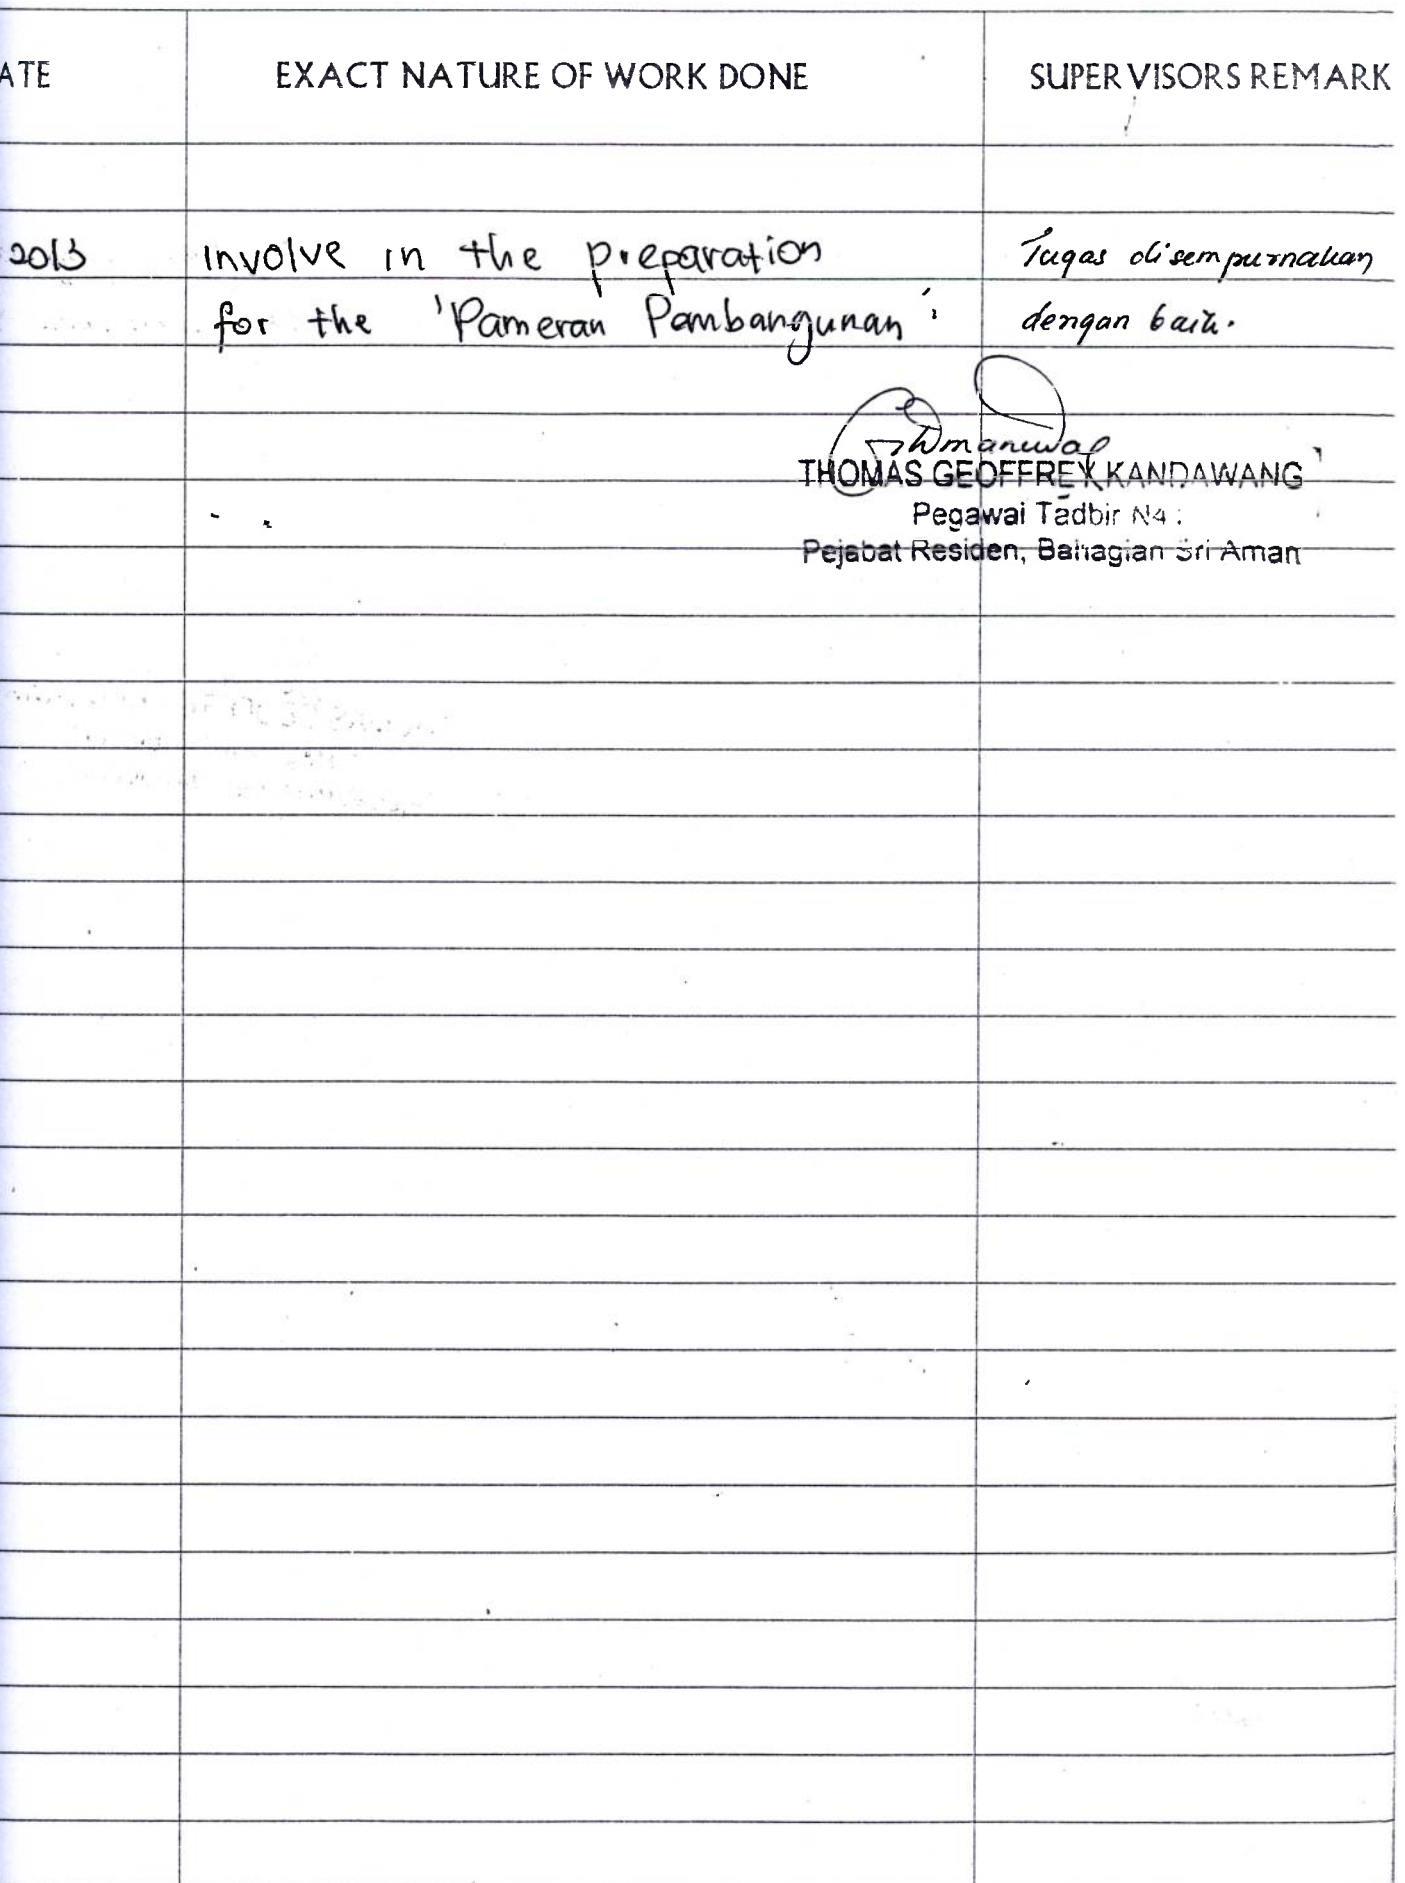 ATE EXACT NATURE OF WORK DONE SUPERVISORS REMARK
2013 involve in the preparation Tugas disempurnakan
for the 'Pameran Pembangunan'. dengan baik.
THOMAS GEOFFREY KANDAWANG
Pegawai Tadbir N4
Pejabat Residen, Bahagian Sri Aman